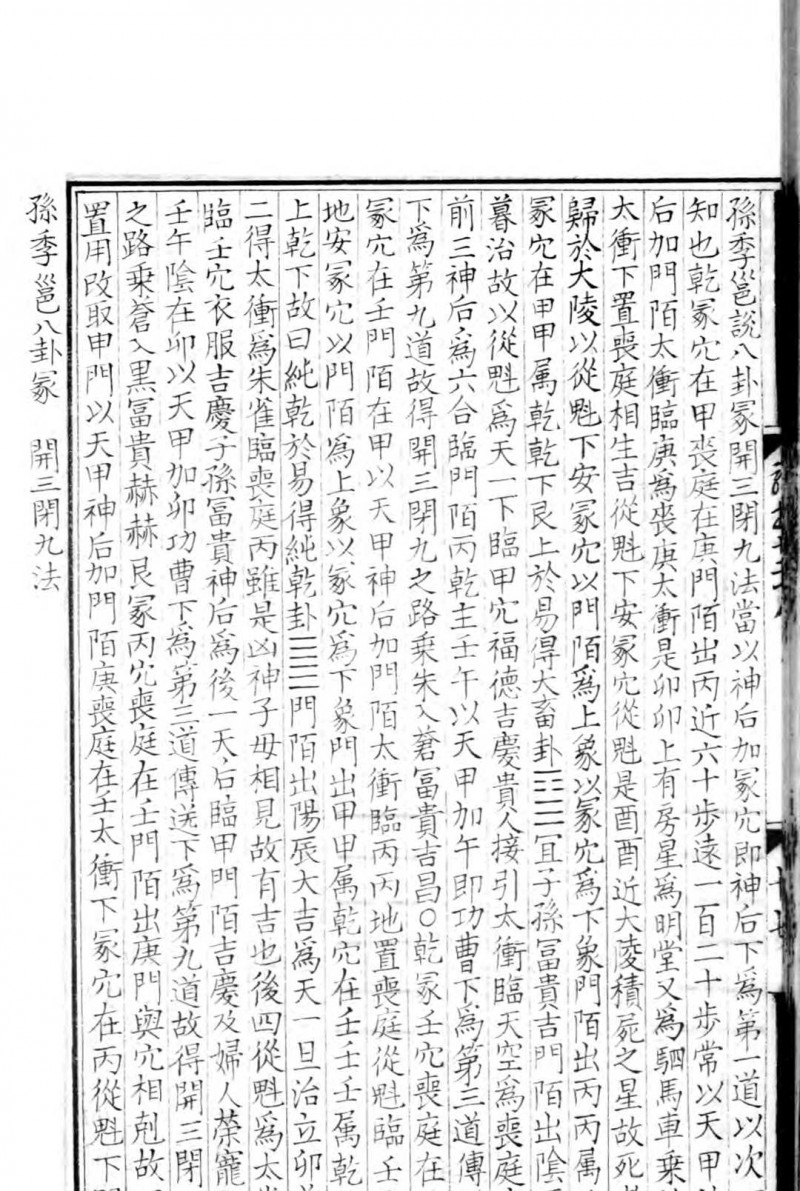 孫季邕說八卦冢開三閉九法當以神后加冢穴即神后下爲第一道以次
知也乾冢穴在甲喪庭在庚門陌出丙近六十步遠一百二十步常以天甲
后加門陌太衝臨庚爲喪庚太衝是卯卯上有房星爲明堂又爲駟馬車乗
太衝下置喪庭相生吉從魁下安冢穴從魁是酉酉近大陵積屍之星故死
歸於大陵以從魁下安冢穴以門陌爲上象以冢穴爲下象門陌出丙丙属
冢穴在甲甲属乾乾下艮上於易得大畜卦䷙宜子孫冨貴吉門陌出陰
暮治故以從魁爲天一下臨甲穴福德吉慶貴人接引太衝臨天空爲喪庭
前三神后爲六合臨門陌丙乾主壬午以天甲加午即功曹下爲第三道傳
下爲第九道故得開三閉九之路乗朱入蒼冨貴吉昌〇乾冢壬穴喪庭在
冢穴在壬門陌在甲以天甲神后加門陌太衝臨丙丙地置喪庭從魁臨壬
地安冢穴以門陌爲上象以冢穴爲下象門出甲甲属乾穴在壬壬壬属乾
上乾下故曰純乾於易得純乾卦䷀門陌出陽辰大吉爲天一旦治立卯
二得太衝爲朱雀臨喪庭丙雖是凶神子母相見故有吉也後四從魁爲太
臨壬穴衣服吉慶子孫冨貴神后爲後一天后臨甲門陌吉慶及婦人榮寵
壬午陰在卯以天甲加卯功曹下爲第三道傳送下爲第九道故得開三閉
之路乗蒼入黒冨貴赫赫艮冢丙穴喪庭在壬門陌出庚門與穴相剋故
置用改取申門以天甲神后加門陌庚喪庭在壬太衝下冢穴在丙從魁下
孫季邕八卦冢　開三閉九法